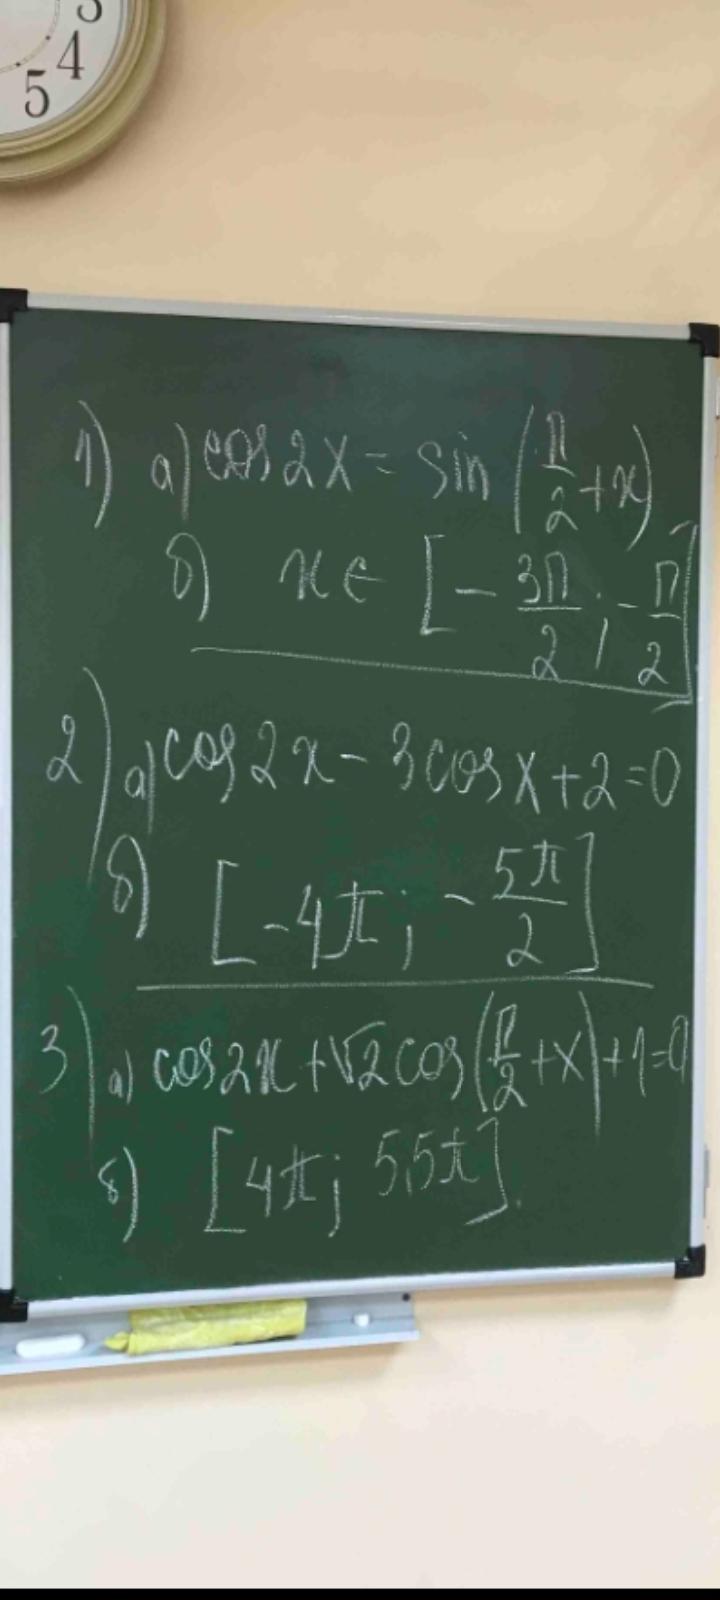 3
4
5
1) а) cos2x = sin(π/2 + x)
б) x ∈ [-3π/2 ; -π/2]
2) а) cos2x - 3cosx + 2 = 0
б) [-4π; -5π/2]
3) а) cos2x + √2cos(π/2 + x) + 1 = 0
б) [4π; 5,5π].